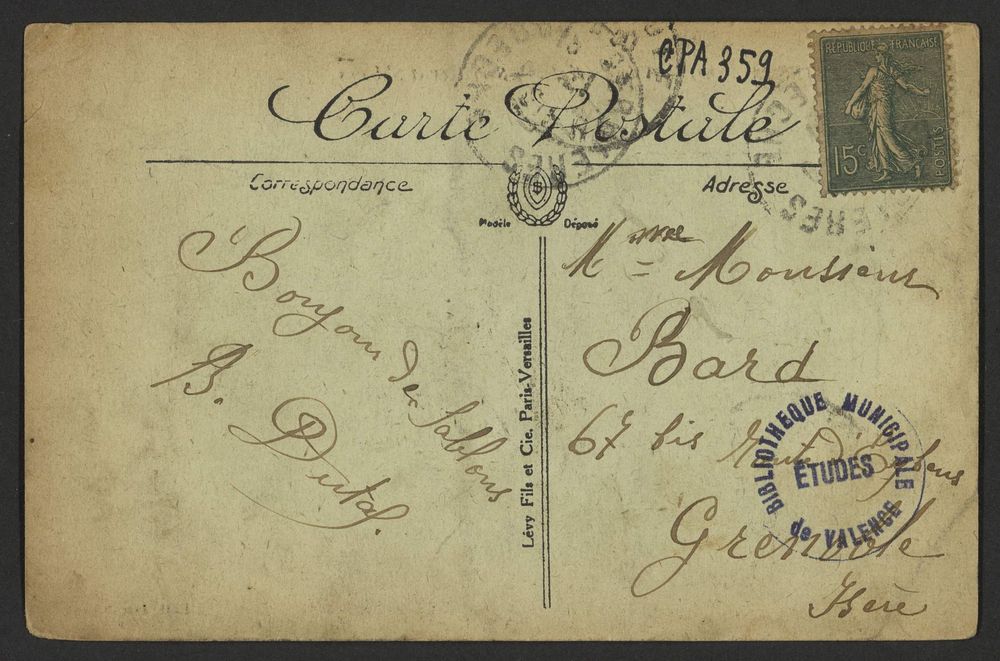 CPA 359
Carte Postale
RÉPUBLIQUE FRANÇAISE
15c
POSTES
Correspondance
Adresse
Modèle Déposé
Bonjour des Sablons
B.
Lévy Fils et Cie. Paris-Versailles
Mme
Bard
67 bis Route d'Eybens
Grenoble
Isère
BIBLIOTHEQUE MUNICIPALE
ÉTUDES
de VALENCE